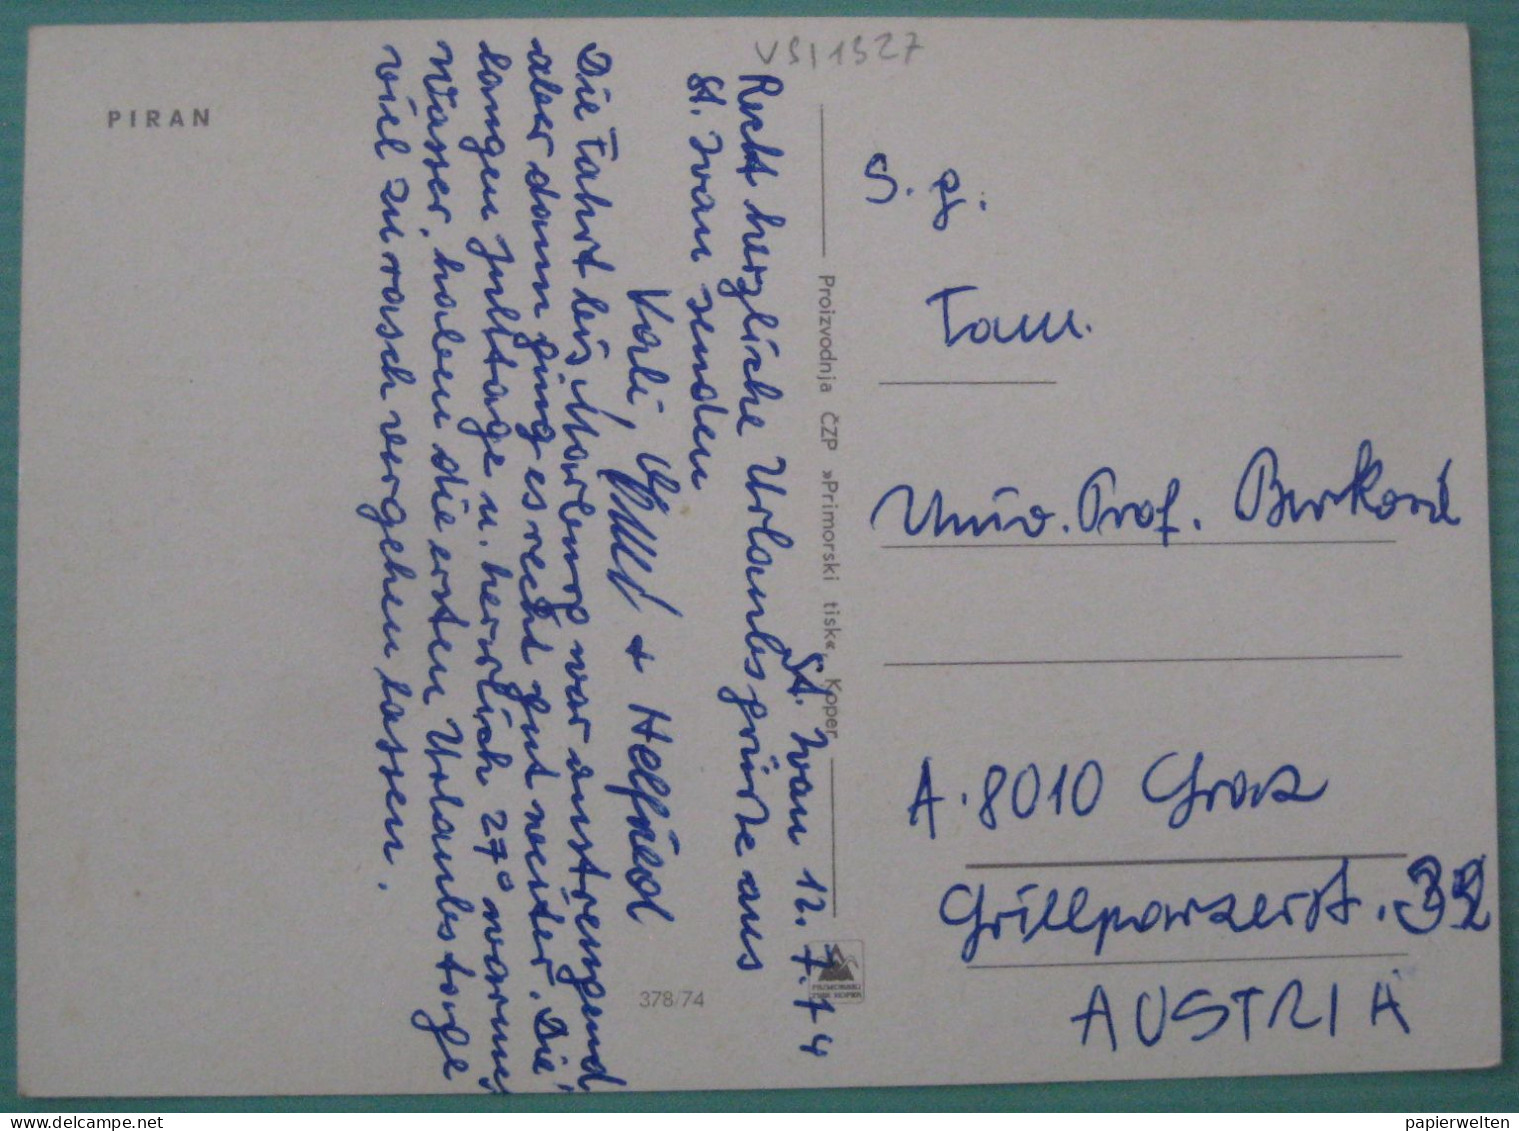 VS11327
PIRAN
St. Ivan 12.7.74
Recht herzliche Urlaubsgrüße aus
St. Ivan senden
Karli, + Helfried
Die Fahrt bis Marburg war anstrengend
aber dann ging es recht gut weiter. Die
langen Julitage u. herrlich 27° warmes
Wasser, haben die ersten Urlaubstage
viel zu rasch vergehen lassen.
Proizvodnja ČZP »Primorski tisk«, Koper
PRIMORSKI
TISK KOPER
378/74
S. g.
Fam.
Univ. Prof. Burkard
A.8010 Graz
Grillparzerst. 32
AUSTRIA
delcampe.net
papierwelten